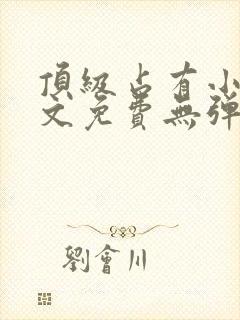 頂級占有小
文免費無彈
劉會川